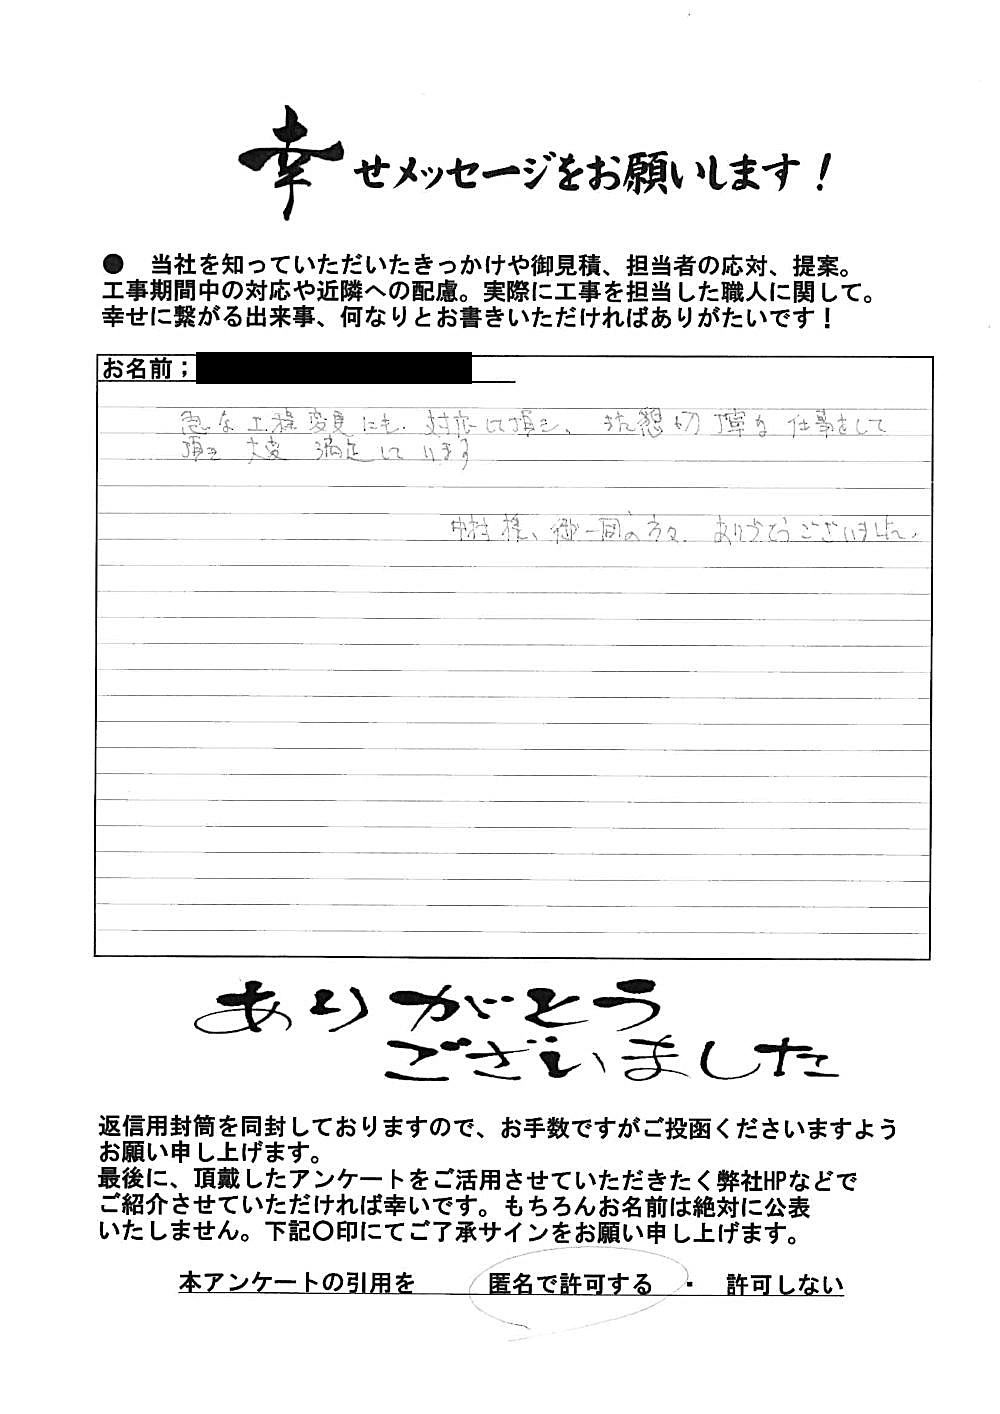 幸せメッセージをお願いします！
●　当社を知っていただいたきっかけや御見積、担当者の応対、提案。
工事期間中の対応や近隣への配慮。実際に工事を担当した職人に関して。
幸せに繋がる出来事、何なりとお書きいただければありがたいです！
お名前；
急な工程変更にも対応して頂き、また懇切丁寧な仕事をして
頂き大変満足しています
中村様、御一同の方々、ありがとうございました。
ありがとう
ございました
返信用封筒を同封しておりますので、お手数ですがご投函くださいますよう
お願い申し上げます。
最後に、頂戴したアンケートをご活用させていただきたく弊社HPなどで
ご紹介させていただければ幸いです。もちろんお名前は絶対に公表
いたしません。下記〇印にてご了承サインをお願い申し上げます。
本アンケートの引用を　匿名で許可する　・　許可しない